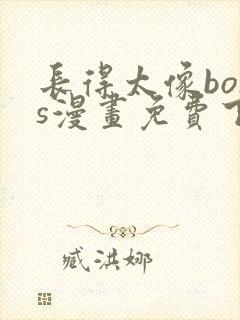 長得太像bos
s漫畫免費下
臧洪娜